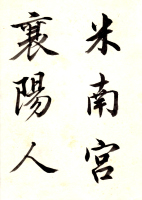 米南宮
襄陽人